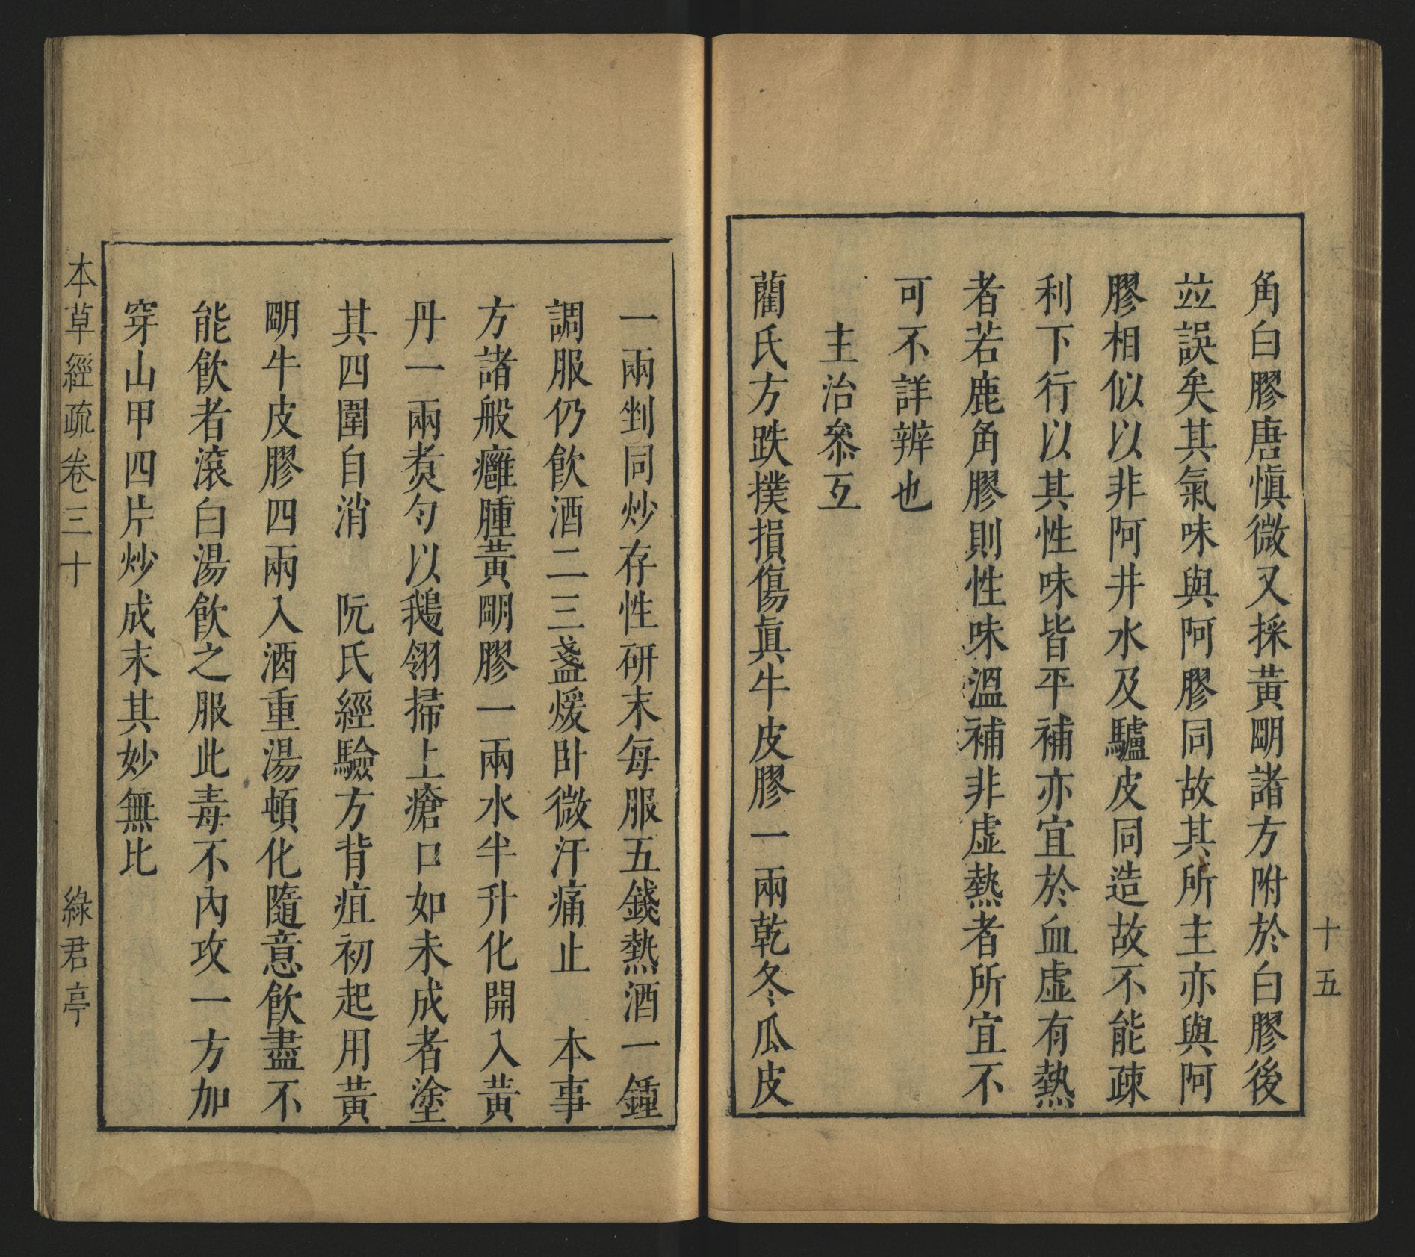 十五
角白膠唐愼微又採黃明諸方附於白膠後
竝誤矣其氣味與阿膠同故其所主亦與阿
膠相似以非阿井水及驢皮同造故不能疎
利下行以其性味皆平補亦宜於血虛有熱
者若鹿角膠則性味溫補非虛熱者所宜不
可不詳辨也
主治叅互
藺氏方跌撲損傷眞牛皮膠一兩乾冬瓜皮
一兩剉同炒存性研末每服五錢熱酒一鍾
調服仍飮酒二三盞煖臥微汗痛止　本事
方諸般癰腫黃明膠一兩水半升化開入黃
丹一兩煑勻以鵞翎掃上瘡口如未成者塗
其四圍自消　阮氏經驗方背疽初起用黃
明牛皮膠四兩入酒重湯頓化隨意飮盡不
能飮者滾白湯飮之服此毒不內攻一方加
穿山甲四片炒成末其妙無比
本草經疏卷三十
綠君亭